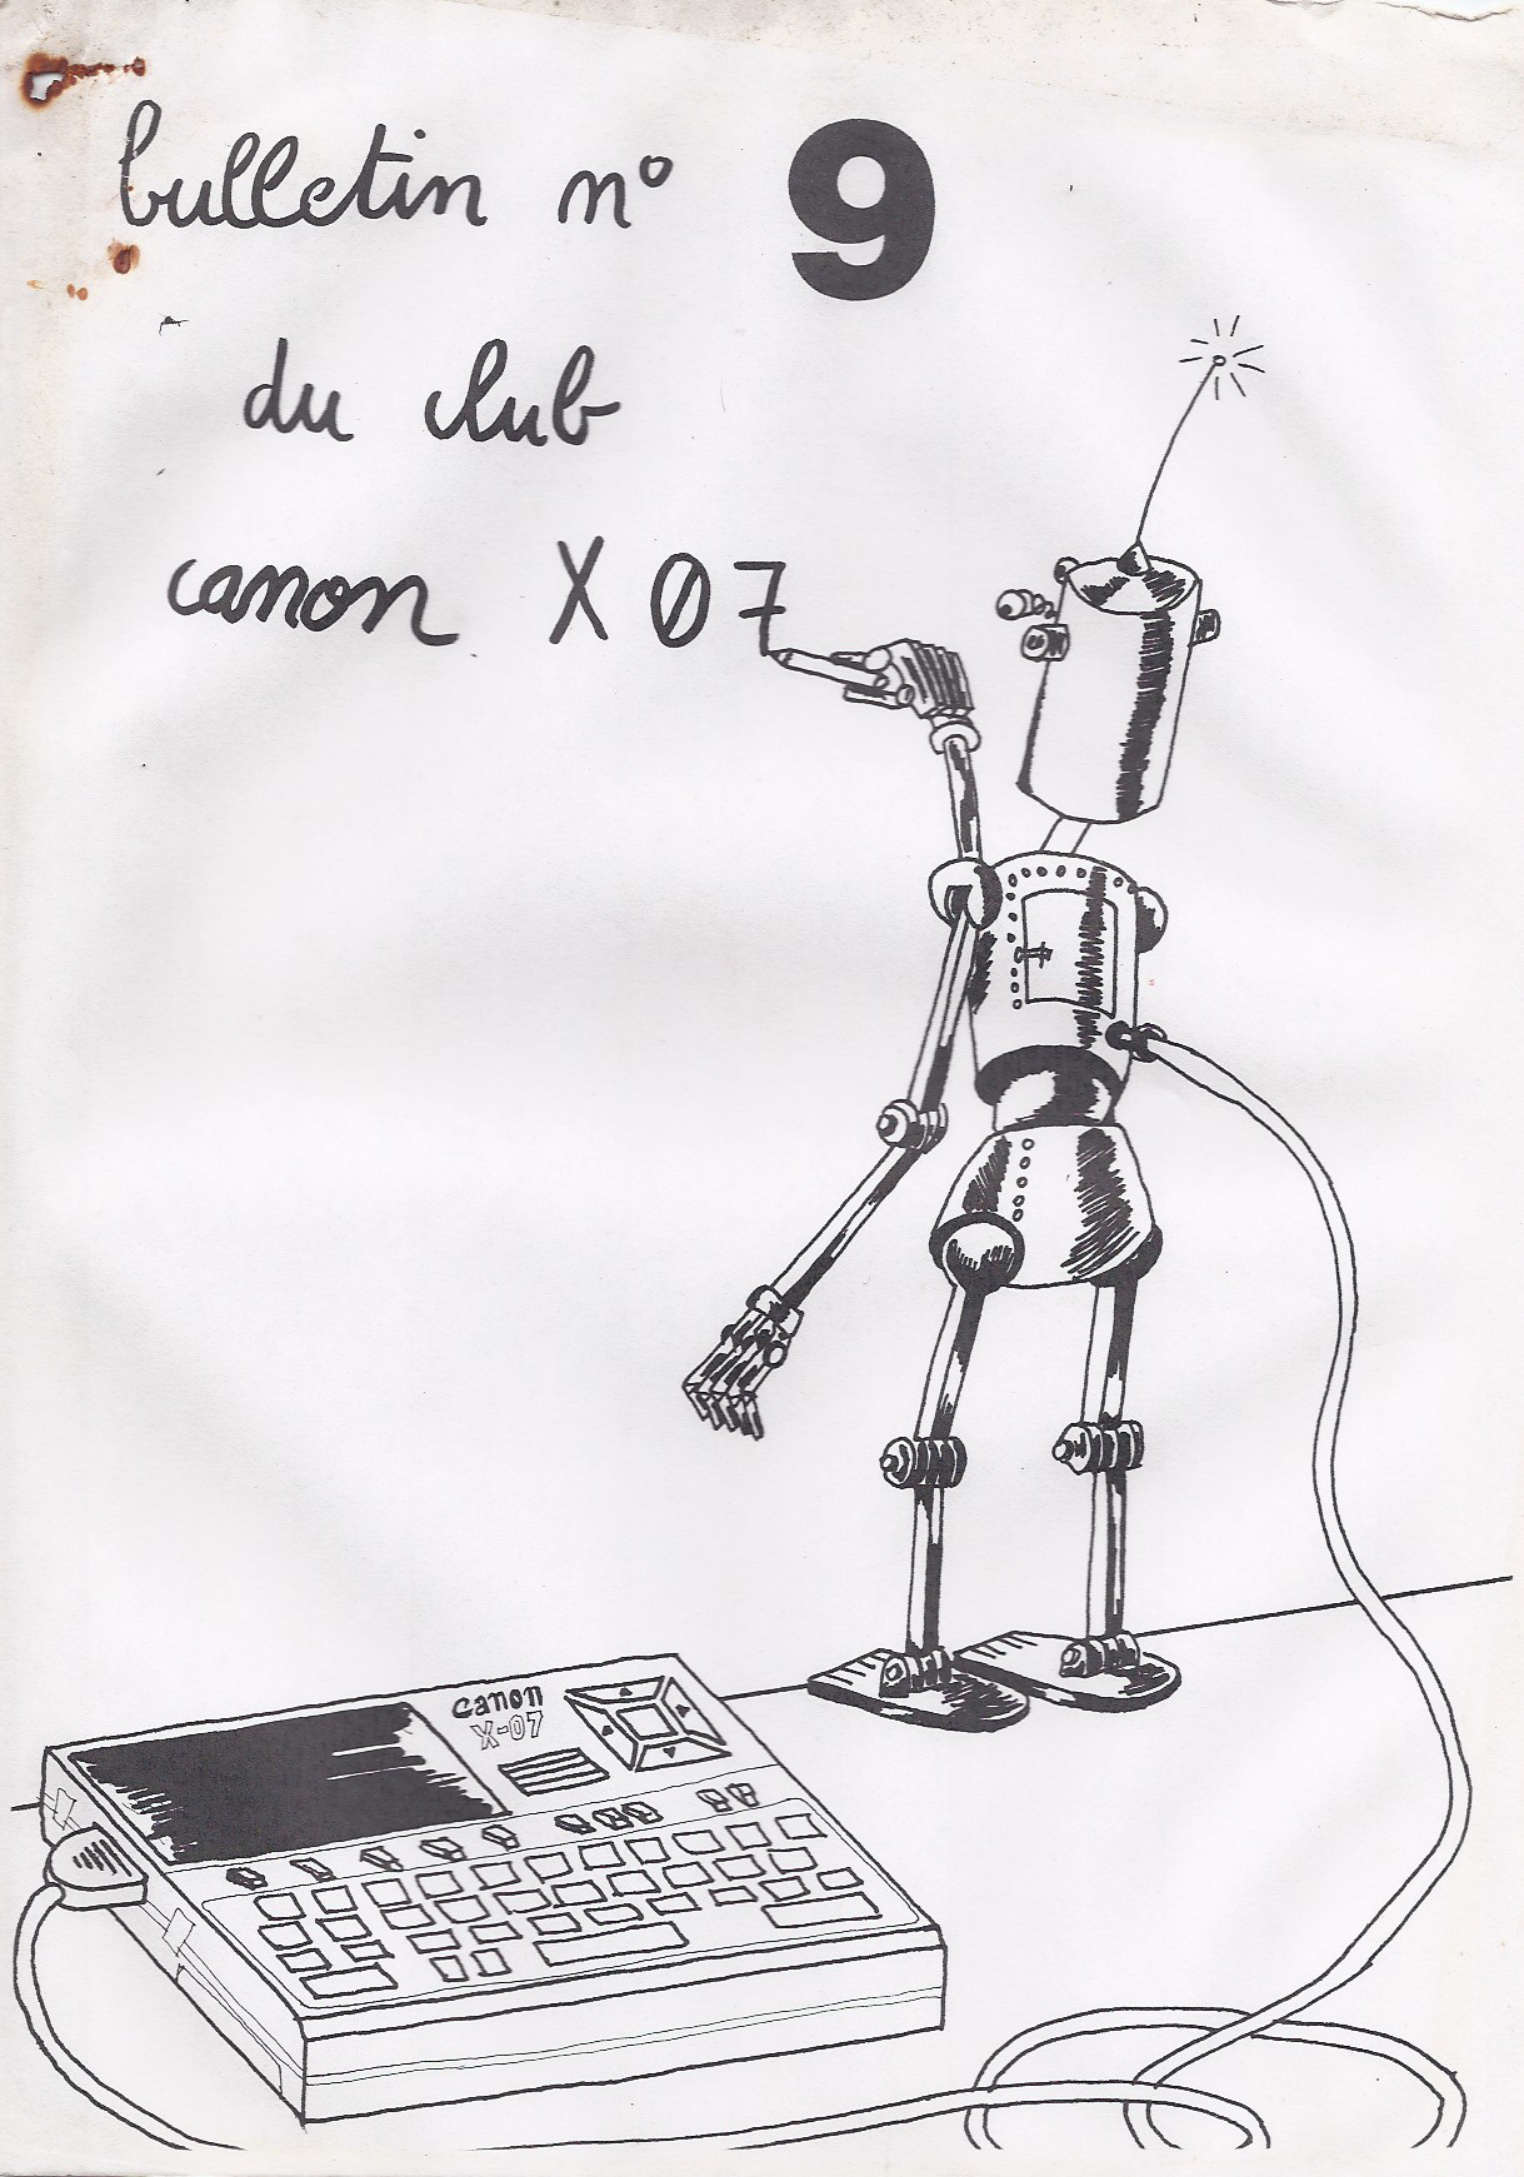 bulletin n° 9
du club
canon X Ø7
canon
X-07